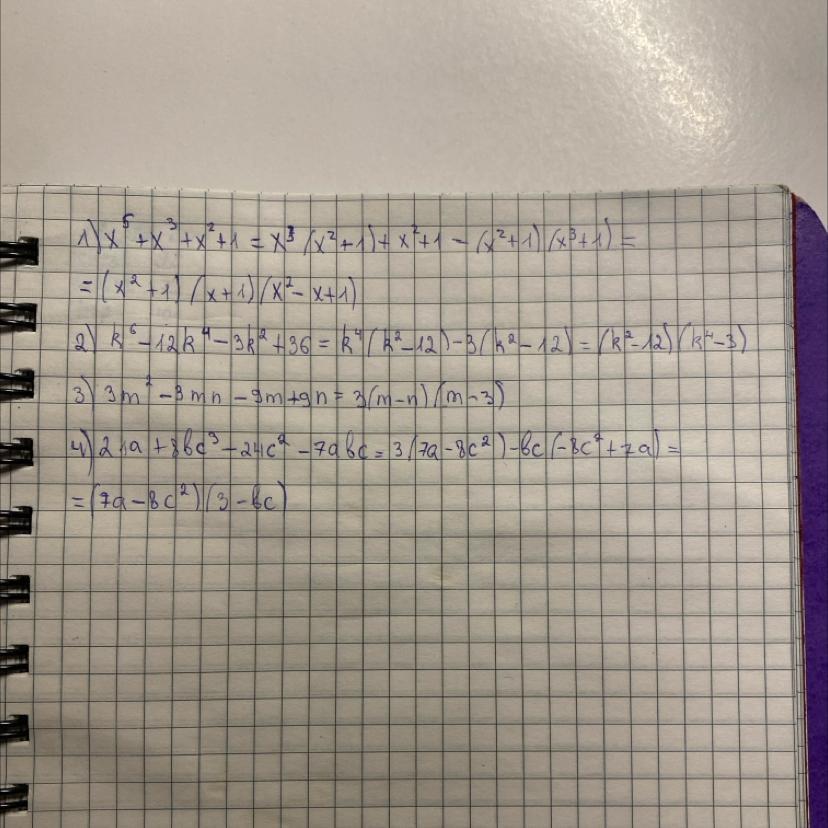 1) x⁵+x³+x²+1 = x³(x²+1)+x²+1 - (x²+1)(x³+1) =
= (x²+1)(x+1)(x²-x+1)
2) k⁶-12k⁴-3k²+36 = k⁴(k²-12)-3(k²-12) = (k²-12)(k⁴-3)
3) 3m²-3mn-9m+9n = 3(m-n)(m-3)
4) 21a+8bc³-24c²-7abc = 3(7a-8c²)-bc(-8c²+7a) =
= (7a-8c²)(3-bc)